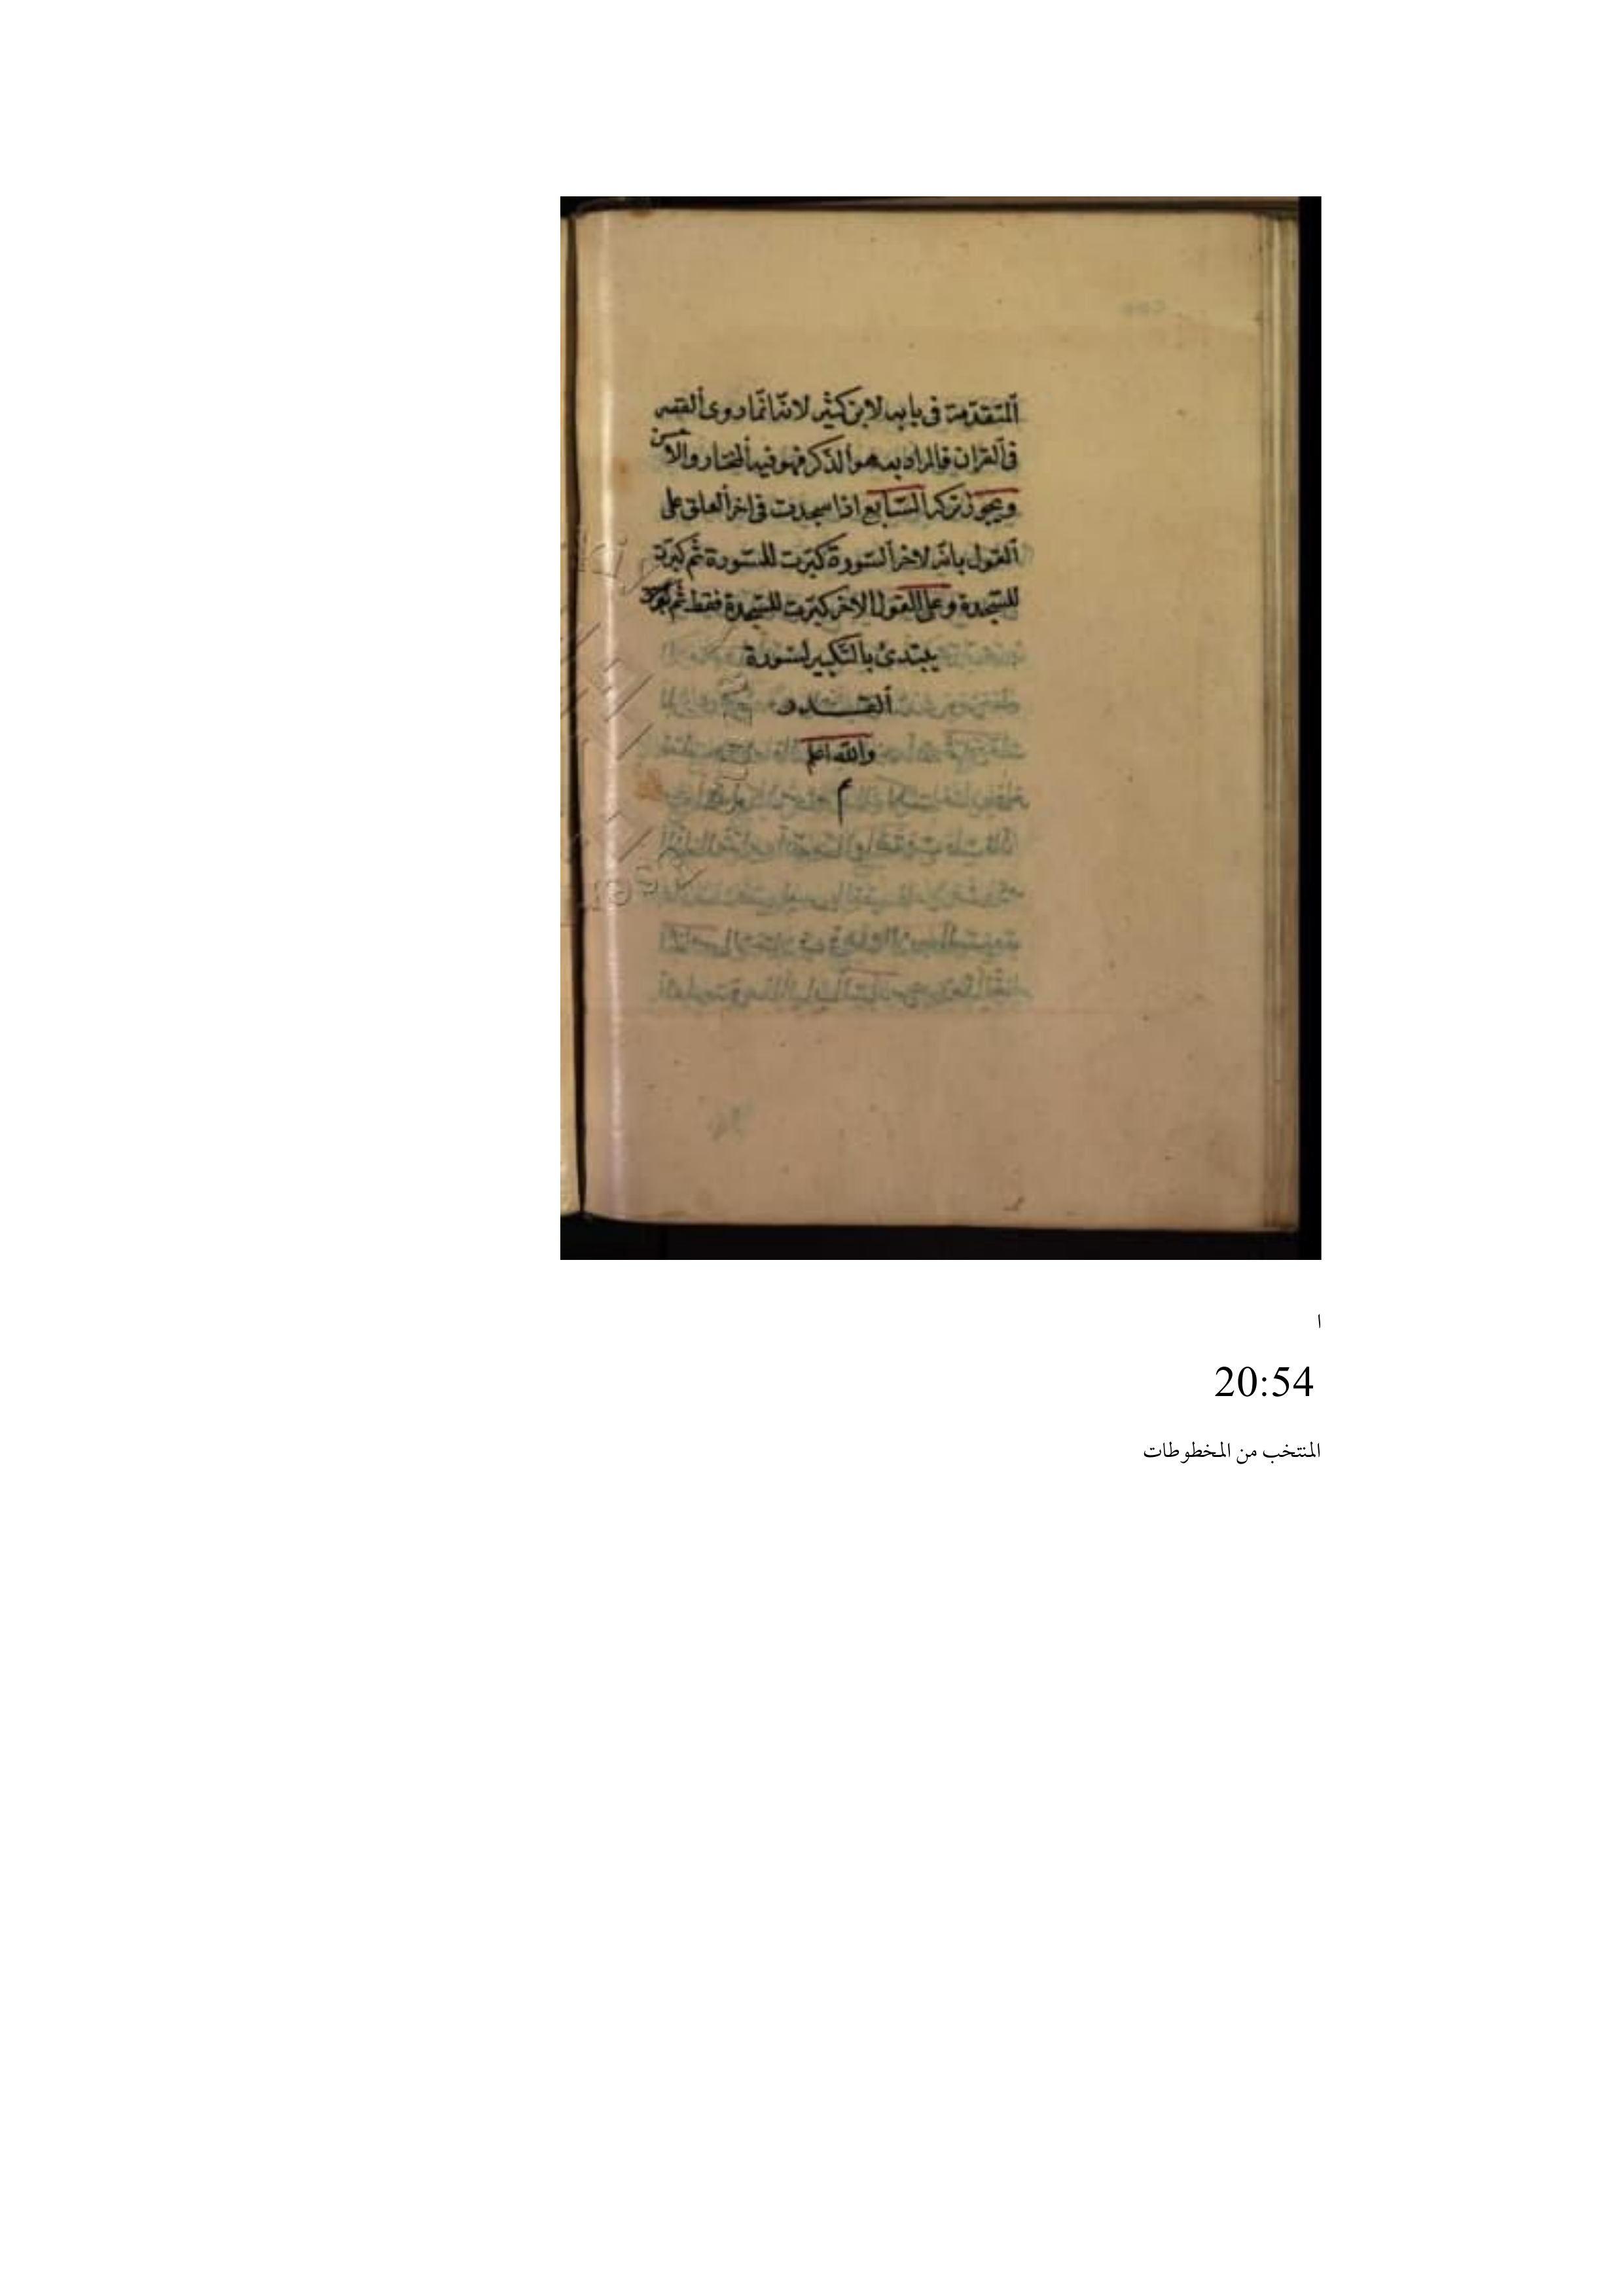 المتقدّمة فى بابه لابن كثير لانه انّما روى القصر
فى القران فالمراد به هو الذكر فهو فيه المختار والاحسن
ويجوز تركه السّابع اذا سجدت فى اخر العلق على
القول بانّه لاخر السّورة كبّرت للسّورة ثم كبرّت
للسّجدة وعلى القول الاخر كبّرت للسّجدة فقط ثم
يبتدئ بالتّكبير لسورة
القدر
والله اعلم
م
ا
20:54
المنتخب من المخطوطات